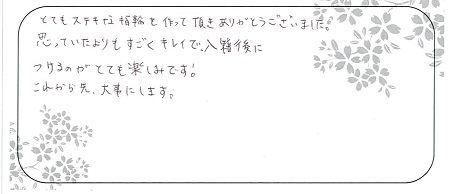 とてもステキな指輪を作って頂きありがとうございました。
思っていたよりもすごくキレイで、入籍後に
つけるのがとても楽しみです!
これから先、大事にします。